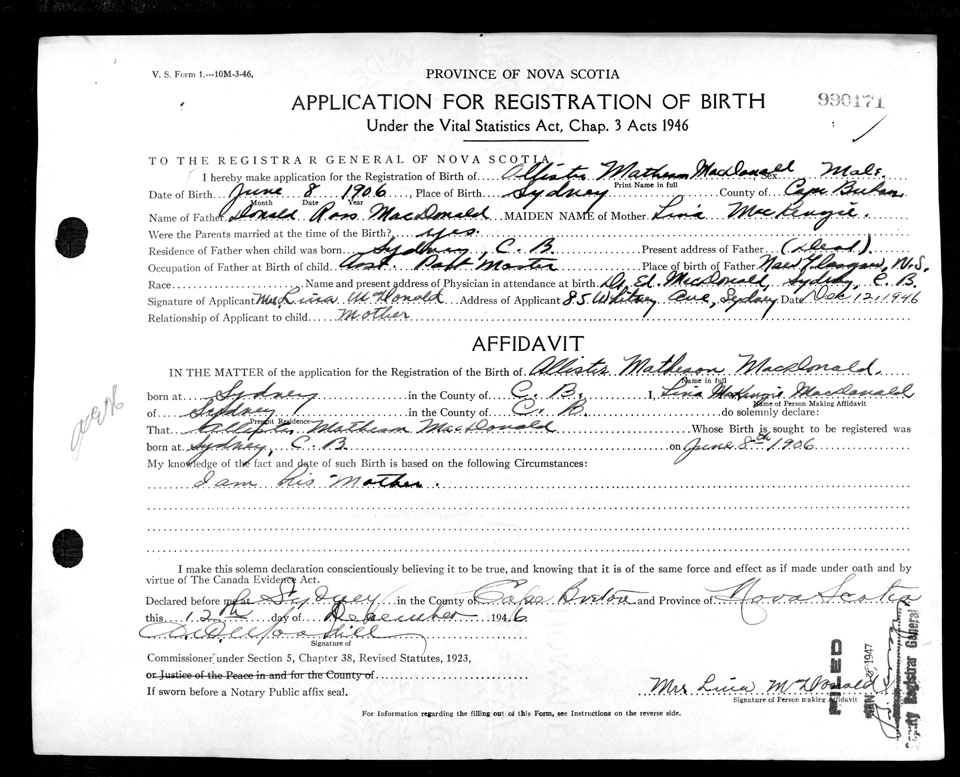 V. S. Form 1.---10M-3-46,
PROVINCE OF NOVA SCOTIA
APPLICATION FOR REGISTRATION OF BIRTH
990171
Under the Vital Statistics Act, Chap. 3 Acts 1946
TO THE REGISTRAR GENERAL OF NOVA SCOTIA
I hereby make application for the Registration of Birth of Allister Matheson MacDonald Sex Male
Print Name in full
Date of Birth June 8 1906, Place of Birth Sydney County of Cape Breton
Month Date Year
Name of Father Donald Ross MacDonald MAIDEN NAME of Mother Lina MacKenzie.
Were the Parents married at the time of the Birth? Yes.
Residence of Father when child was born Sydney, C. B. Present address of Father (Dead)
Occupation of Father at Birth of child Asst. Post Master Place of birth of Father New Glasgow, N.S.
Race Name and present address of Physician in attendance at birth Dr. Ed. MacDonald, Sydney, C. B.
Signature of Applicant Mrs Lina McDonald Address of Applicant 85 Whitney Ave, Sydney Date Dec 12, 1946
Relationship of Applicant to child Mother
AFFIDAVIT
IN THE MATTER of the application for the Registration of the Birth of Allister Matheson MacDonald.
Name in full
born at Sydney in the County of C. B. I, Lina McKenzie MacDonald
Name of Person Making Affidavit
of Sydney in the County of C. B. do solemnly declare:
Present Residence
That Allister Matheson MacDonald Whose Birth is sought to be registered was
born at Sydney, C. B. on June 8th 1906
My knowledge of the fact and date of such Birth is based on the following Circumstances:
I am his Mother.
I make this solemn declaration conscientiously believing it to be true, and knowing that it is of the same force and effect as if made under oath and by
virtue of The Canada Evidence Act.
Declared before me at Sydney in the County of Cape Breton and Province of Nova Scotia
this 12th day of December 1946
Signature of
Commissioner under Section 5, Chapter 38, Revised Statutes, 1923,
or Justice of the Peace in and for the County of
If sworn before a Notary Public affix seal.
Mrs Lina McDonald
Signature of Person making Affidavit
FILED
JAN 1947
Deputy Registrar General
For Information regarding the filling out of this Form, see Instructions on the reverse side.